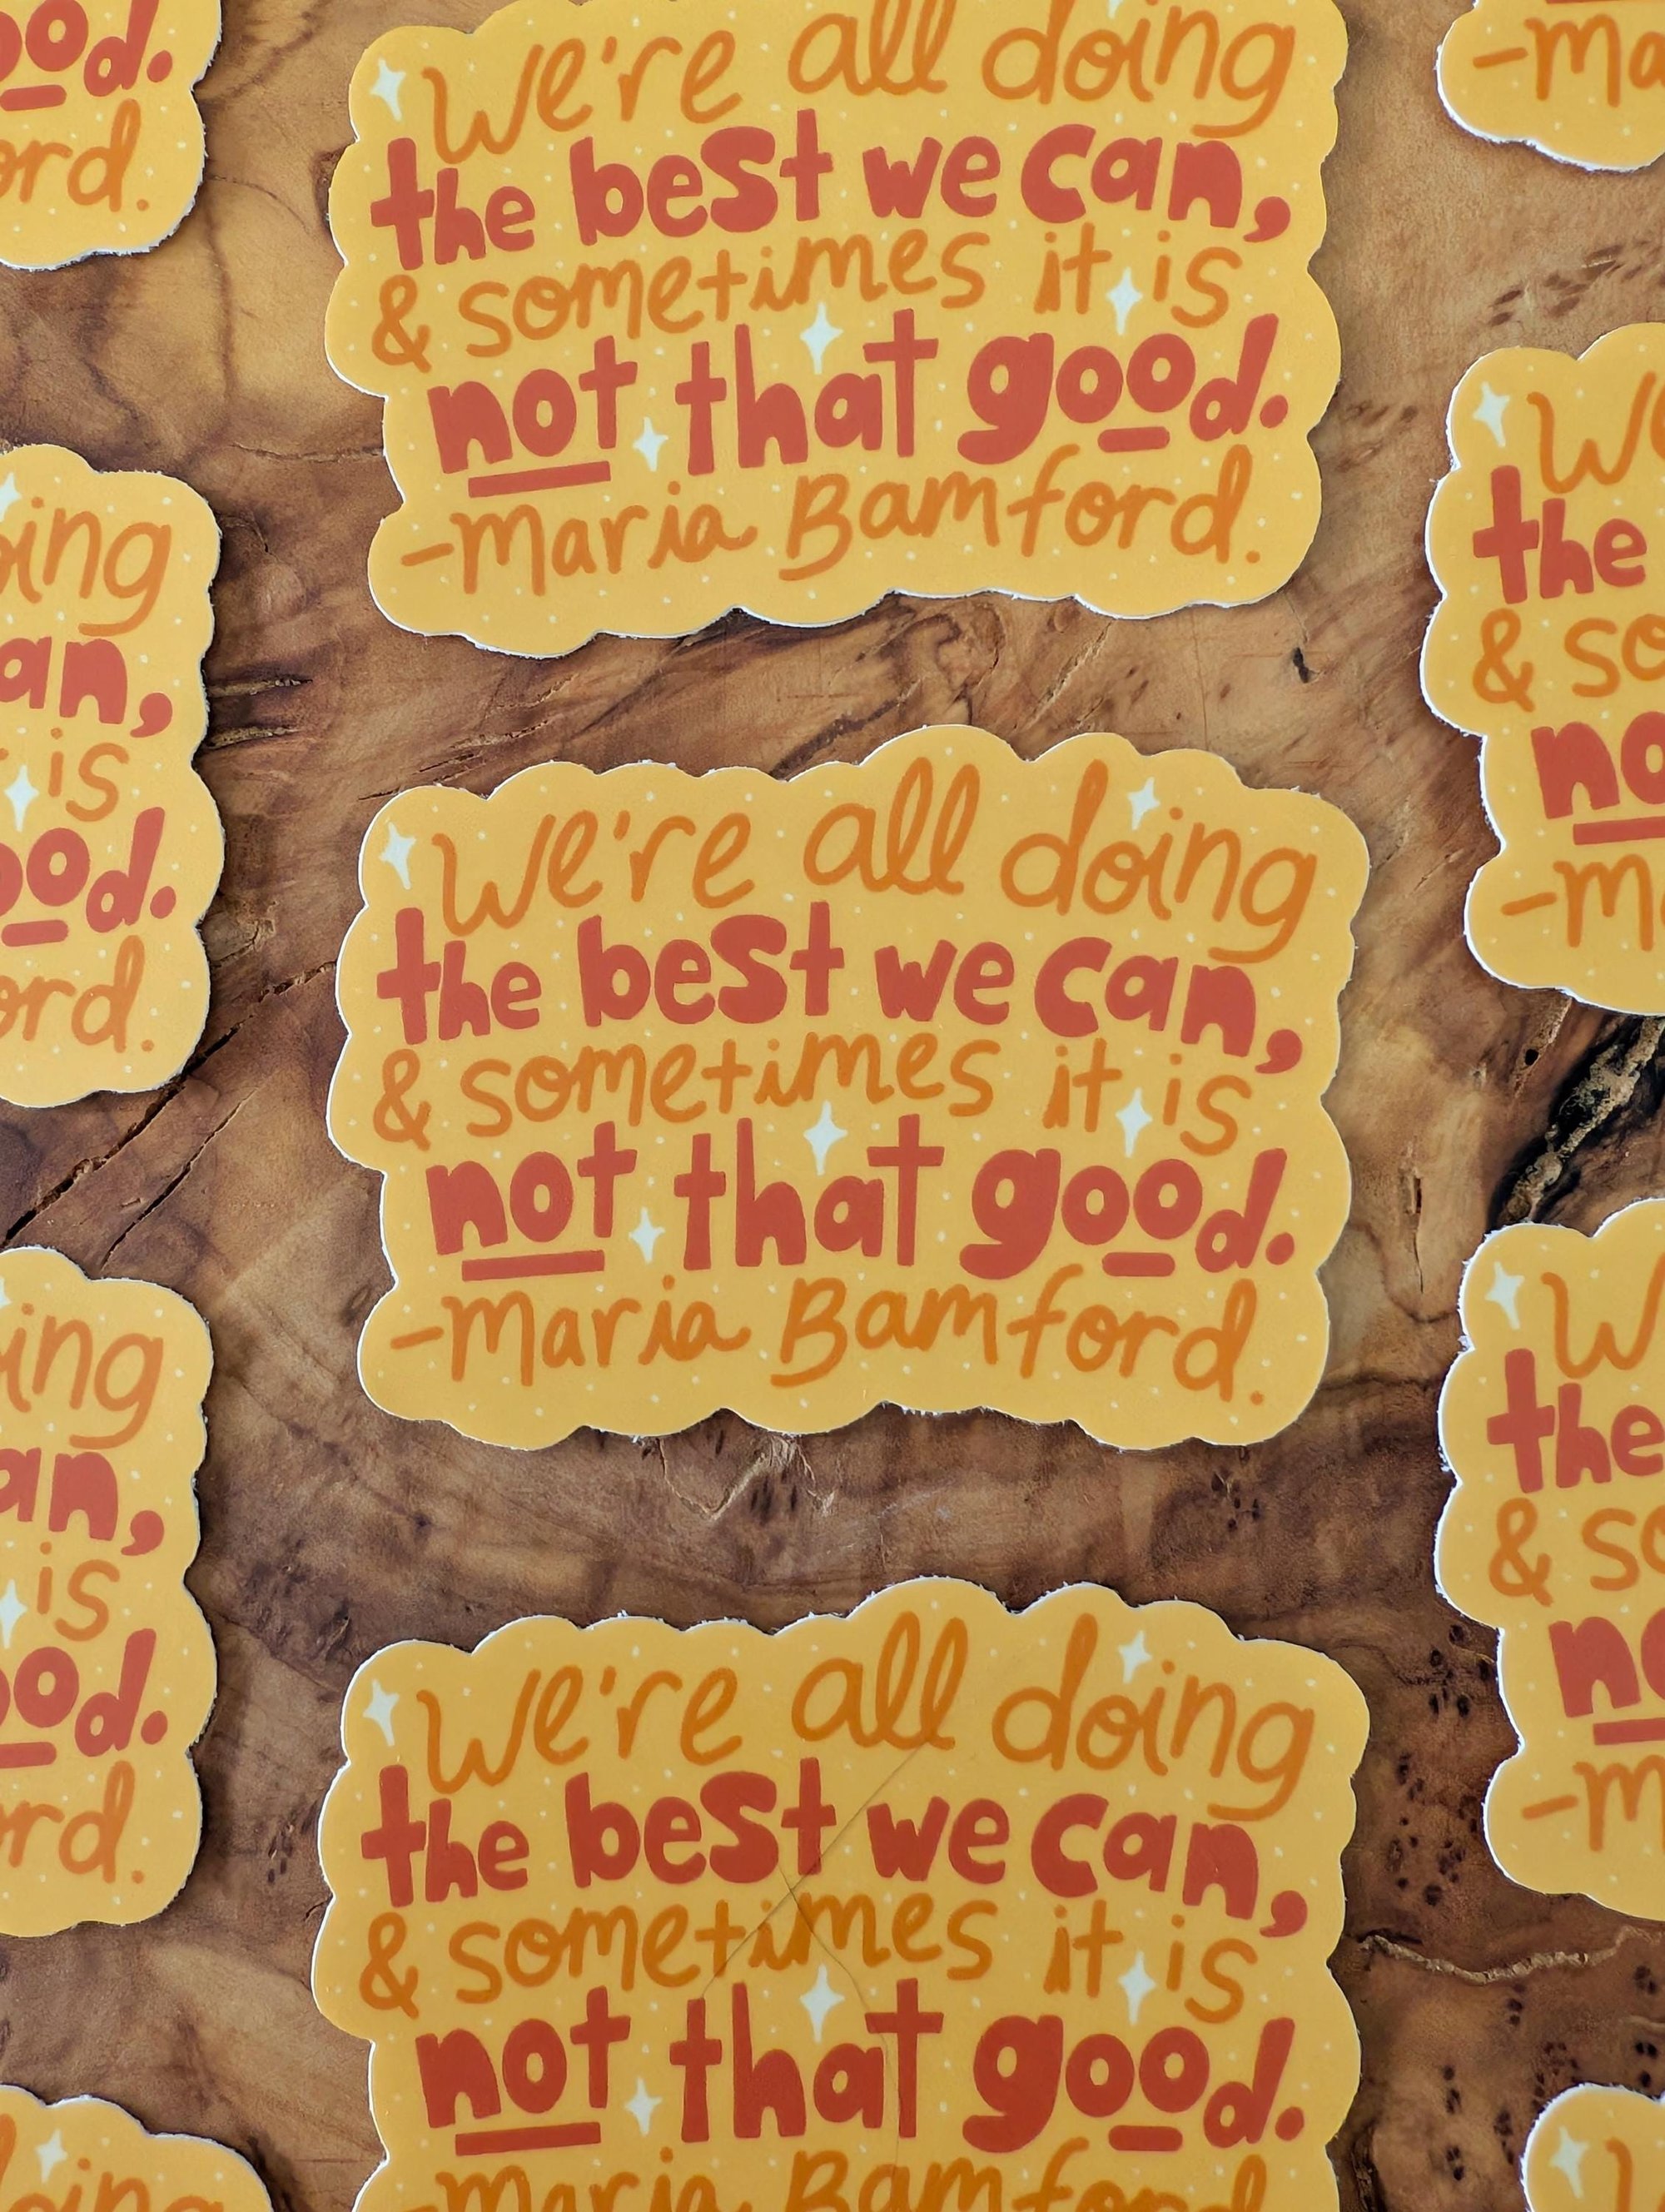 ood.
ord.
We're all doing
the best we can,
& sometimes it is
not that good.
-Maria Bamford.
-Ma
oing
an,
is
ood.
ord.
We're all doing
the best we can,
& sometimes it is
not that good.
-Maria Bamford.
We
the
& so
no
-M
ing
an,
is
ood.
rd.
We're all doing
the best we can,
& sometimes it is
not that good.
-Maria Bamford
W
the
& so
no
-m
oing